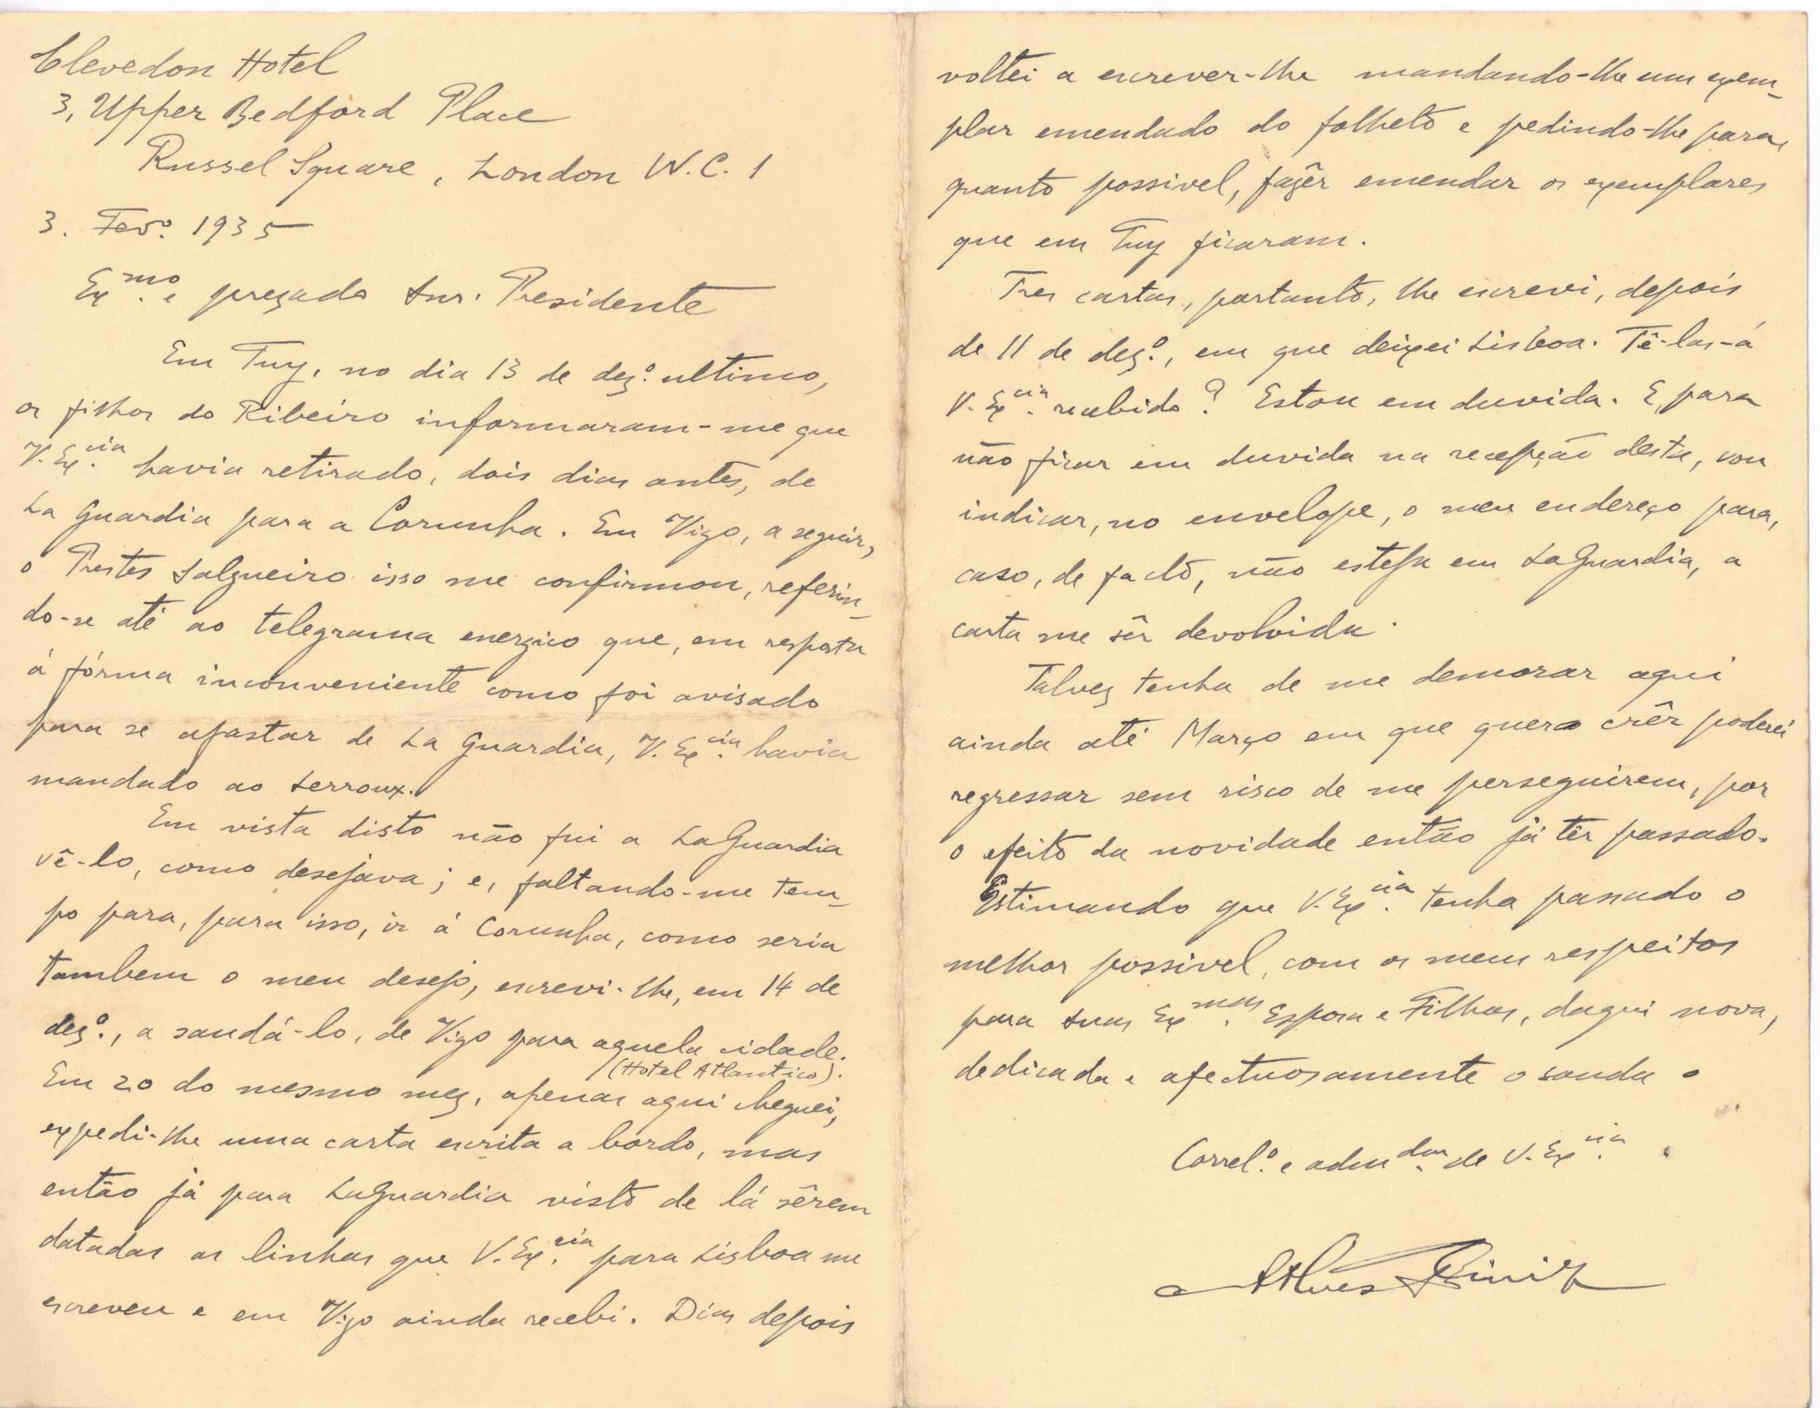 Clevedon Hotel
3, Upper Bedford Place
Russel Square, London W.C. 1
3. Fevo. 1935
Exmo. e prezado Snr. Presidente
Em Tuy, no dia 13 de dezo. ultimo,
os filhos do Ribeiro informaram-me que
V. Excia. havia retirado, dois dias antes, de
La Guardia para a Corunha. Em Vigo, a seguir,
o Prestes Salgueiro isso me confirmou, referin-
do-se até ao telegrama energico que, em resposta
á fórma inconveniente como foi avisado
para se afastar de La Guardia, V. Excia. havia
mandado ao Lerroux.
Em vista disto não fui a LaGuardia
vê-lo, como desejava; e, faltando-me tem-
po para, para isso, ir á Corunha, como seria
tambem o meu desejo, escrevi-lhe, em 14 de
dezo., a saudá-lo, de Vigo para aquela cidade.
(Hotel Atlantico).
Em 20 do mesmo mez, apenas aqui cheguei,
expedi-lhe uma carta escrita a bordo, mas
então já para LaGuardia visto de lá sêrem
datadas as linhas que V. Excia. para Lisboa me
escreveu e em Vigo ainda recebi. Dias depois
voltei a escrever-lhe mandando-lhe um exem-
plar emendado do folheto e pedindo-lhe para,
quanto possivel, fazêr emendar os exemplares
que em Tuy ficaram.
Tres cartas, portanto, lhe escrevi, depois
de 11 de dezo., em que deixei Lisboa. Tê-las-á
V. Excia. recebido? Estou em duvida. E, para
não ficar em duvida na recepção desta, vou
indicar, no envelope, o meu endereço para,
caso, de facto, não esteja em LaGuardia, a
carta me sêr devolvida.
Talvez tenha de me demorar aqui
ainda até Março em que quero crêr poderei
regressar sem risco de me perseguirem, por
o efeito da novidade então já têr passado.
Estimando que V. Excia. tenha passado o
melhor possivel, com os meus respeitos
para suas Exmas. Esposa e Filhas, daqui nova,
dedicada e afectuosamente o sauda o
Correlo. e admdor. de V. Excia.
Alves Diniz